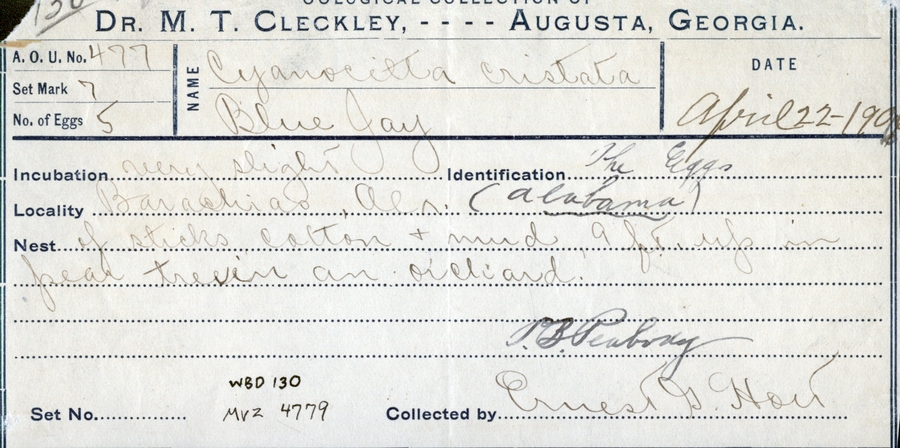 130
OOLOGICAL COLLECTION OF
DR. M. T. CLECKLEY, - - - - AUGUSTA, GEORGIA.
A. O. U. No. 477
Set Mark 7
No. of Eggs 5
NAME Cyanocitta cristata
Blue Jay
DATE
April 22-190
Incubation very slight Identification The Eggs
Locality Barachias, Ala. (Alabama)
Nest of sticks cotton + mud, 9 ft. up in
pear tree in an orchard.
P.B. Peabody
WBD 130
Set No. MVZ 4779 Collected by Ernest G. Holt